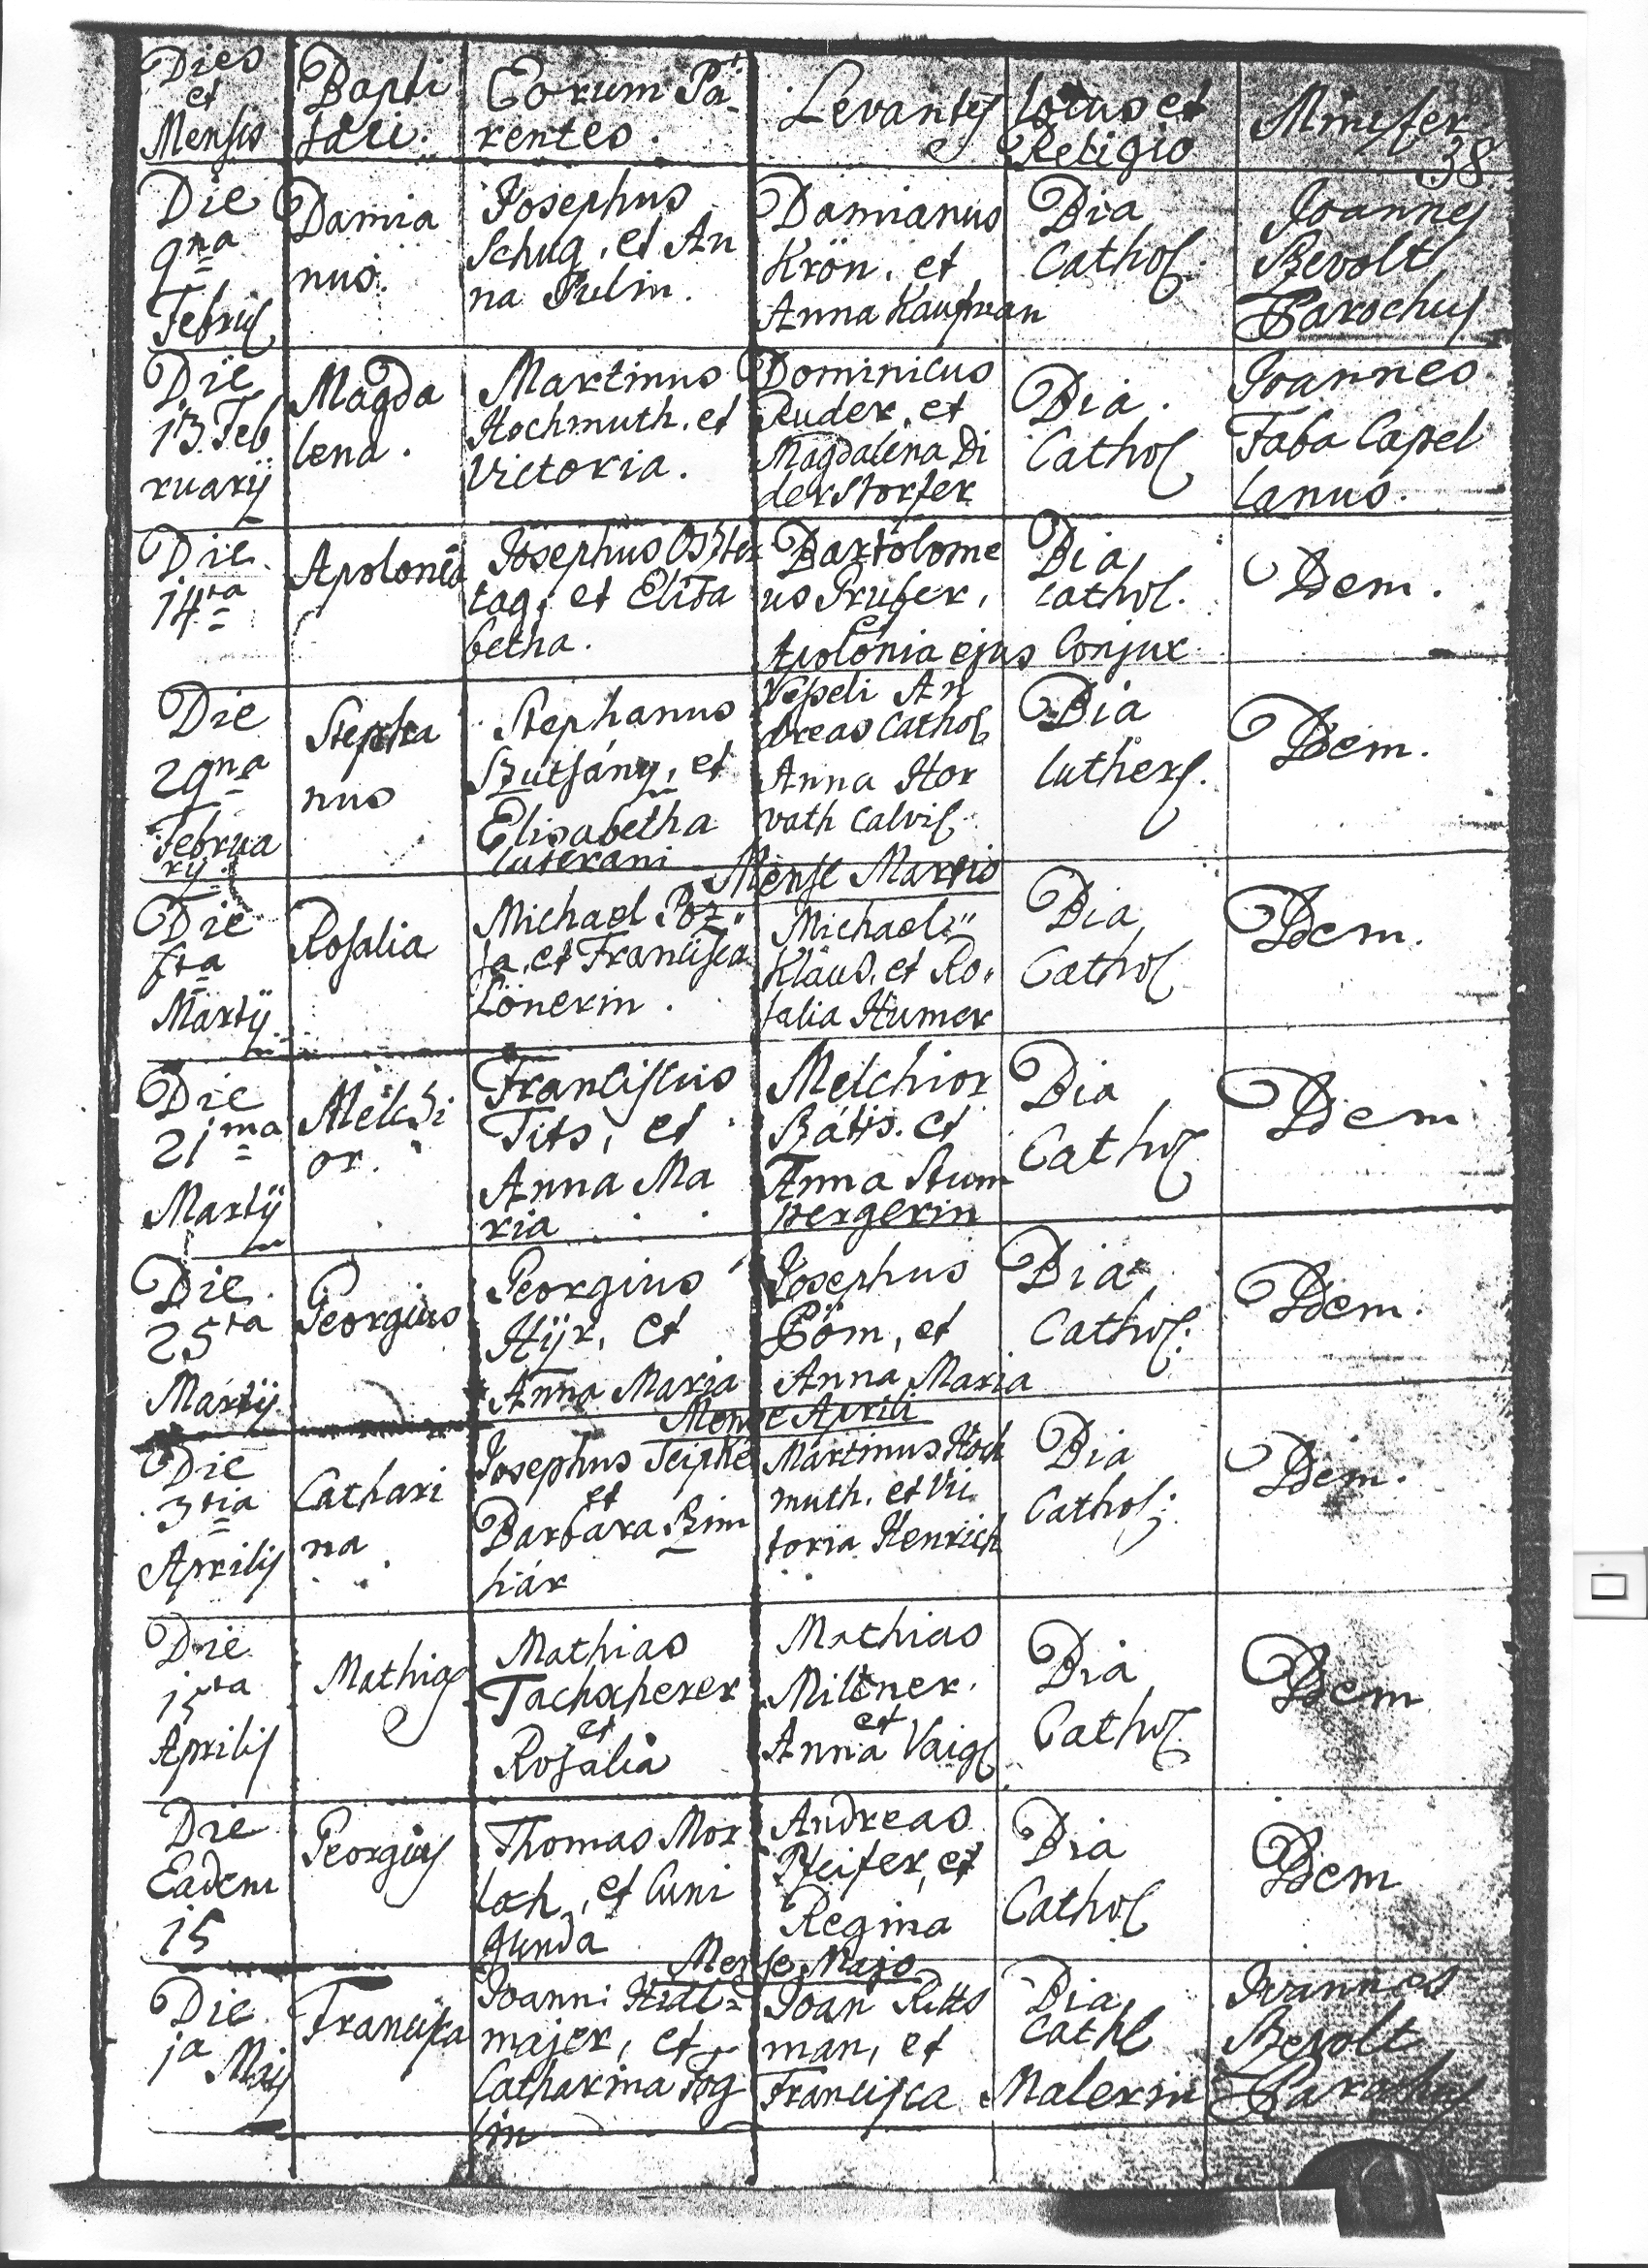 Dies
et
Mensis
Bapti
sati.
Eorum Pa-
rentes.
Levantes
Locus et
Religio
Minister
38
Die
9na
Febrũ
Damia
nus.
Josephus
Schug, et An
na Pulin.
Damianus
Krön, et
Anna Kaufman
Bia
Cathol:
Joannes
Bevolt
Parochus
Die
13 Feb
ruarij
Magda
lena.
Martinus
Hochmuth, et
Victoria.
Dominicus
Ruder, et
Magdalena Di
derstorfer
Bia.
Cathol
Joannes
Faba Capel
lanus.
Die
14ta
Apolonia
Josephus Oszter
tag, et Elisa
betha.
Bartolome
us Prufer,
et
Apolonia ejus Conjux
Bia
Cathol.
Idem.
Die
29na
Februa
rij
Stepha
nus
Stephanus
Szutsány, et
Elisabetha
luterani
Vépeli An
dreas Cathol
Anna Hor
vath Calvi
Bia
luther.
Idem.
Mense Martio
Die
Martij
Rosalia
Michael Poz
sa, et Francisca
Lönerin.
Michael
Klaus, et Ro
salia Humer
Bia
Cathol
Idem.
Die
21ma
Martij
Melchi
or.
Franciscus
Tits, et
Anna Ma
ria
Melchior
Szátis, et
Anna Stum
pergerin
Bia
Cathol
Idem
Die
25ta
Martij
Georgius
Georgius
Hijr, et
Anna Maria
Josephus
Pöm, et
Anna Maria
Bia
Cathol:
Idem.
Mense Aprili
Die
3tia
Aprilis
Cathari
na
Josephus Teipke
et
Barbara Szim
hár
Martinus Hoch
muth, et Vic
toria Henrich
Bia
Cathol:
Idem.
Die
15ta
Aprilis
Mathias
Mathias
Tachscherer
et
Rosalia
Mathias
Miltner,
et
Anna Vaigl
Bia
Cathol
Idem
Die
Eadem
15
Georgius
Thomas Mor
loch, et Cuni
gunda
Andreas
Pfeifer, et
Regina
Bia
Cathol
Idem
Mense Majo
Die
1a Maij
Francisca
Joanni Hidl-
majer, et
Catharina Fög
lin
Joan Ritts
man, et
Francisca Malerin
Bia
Cathl
Joannes
Bevolt
Parochus